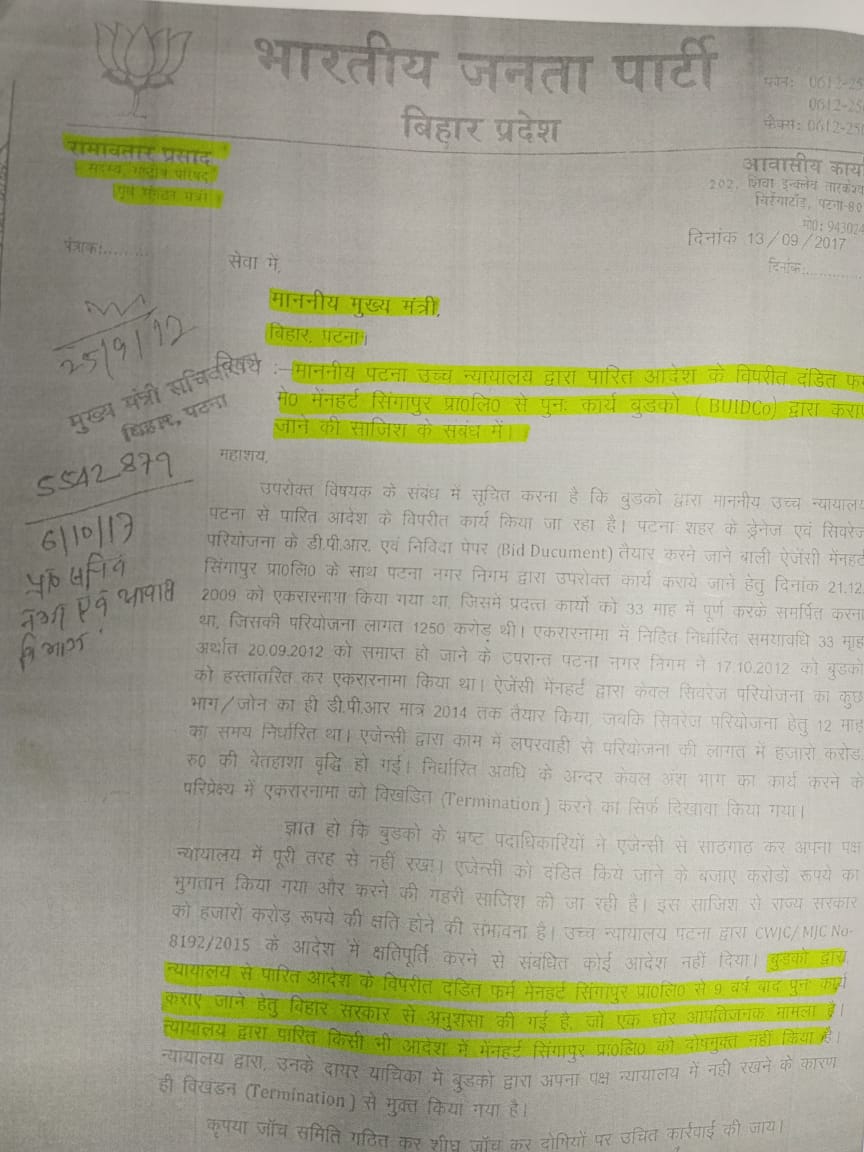 भारतीय जनता पार्टी
बिहार प्रदेश
फोन: 0612-25
0612-25
फैक्स: 0612-25
रामावतार प्रसाद
सदस्य, राष्ट्रीय परिषद
पूर्व संगठन मंत्री
आवासीय कार्या
202, शिवा इन्क्लेव तारकेश्व
चिरैयाटॉड, पटना-80
मो0: 943024
दिनांक 13/09/2017
पत्रांक:.........
दिनांक:............
सेवा में,
माननीय मुख्य मंत्री,
बिहार, पटना।
25/9/17
मुख्य मंत्री सचिवालय
बिहार, पटना
5542879
6/10/17
प्र0 सचिव
नगर एवं आवास
विभाग
विषय :–माननीय पटना उच्च न्यायालय द्वारा पारित आदेश के विपरीत दंडित फर्म
मे0 मेंनहर्ट सिंगापुर प्रा0लि0 से पुनः कार्य बुडको (BUIDCo) द्वारा करा
जाने की साजिश के सबंध में।
महाशय,
उपरोक्त विषयक के संबंध में सूचित करना है कि बुडको द्वारा माननीय उच्च न्यायालय
पटना से पारित आदेश के विपरीत कार्य किया जा रहा है। पटना शहर के ड्रेनेज एवं सिवरेज
परियोजना के डी.पी.आर. एवं निविदा पेपर (Bid Ducument) तैयार करने जाने बाली ऐजेंसी मेंनहर्ट
सिंगापुर प्रा0लि0 के साथ पटना नगर निगम द्वारा उपरोक्त कार्य कराये जाने हेतु दिनांक 21.12.
2009 को एकरारनामा किया गया था, जिसमें प्रदत्त कार्यो को 33 माह में पूर्ण करके समर्पित करना
था, जिसकी परियोजना लागत 1250 करोड़ थी। एकरारनामा में निहित निर्धारित समयावधि 33 माह
अर्थात 20.09.2012 को समाप्त हो जाने के उपरान्त पटना नगर निगम ने 17.10.2012 को बुडको
को हस्तांतरित कर एकरारनामा किया था। ऐजेंसी मेंनहर्ट द्वारा केवल सिवरेज परियोजना का कुछ
भाग/जोन का ही डी.पी.आर मात्र 2014 तक तैयार किया, जबकि सिवरेज परियोजना हेतु 12 माह
का समय निर्धारित था। एजेन्सी द्वारा काम में लपरवाही से परियोजना की लागत में हजारो करोड़
रू0 की बेतहाशा वृद्धि हो गई। निर्धारित अवधि के अन्दर केवल अंश भाग का कार्य करने के
परिप्रेक्ष्य में एकरारनामा को विखडित (Termination ) करने का सिर्फ दिखावा किया गया।
ज्ञात हो कि बुडको के भ्रष्ट पदाधिकारियों ने एजेन्सी से साठगाठ कर अपना पक्ष
न्यायालय में पूरी तरह से नहीं रखा। एजेन्सी को दंडित किये जाने के बजाए करोडो रूपये का
भुगतान किया गया और करने की गहरी साजिश की जा रही है। इस साजिश से राज्य सरकार
को हजारो करोड़ रूपये की क्षति होने की संभावना है। उच्च न्यायालय पटना द्वारा CWJC/MJC No-
8192/2015 के आदेश में क्षतिपूर्ति करने से संबधित कोई आदेश नहीं दिया। बुडको द्वारा
न्यायालय से पारित आदेश के विपरीत दंडित फर्म मेंनहर्ट सिंगापुर प्रा0लि0 से 9 वर्ष बाद पुनः कार्य
कराए जाने हेतु बिहार सरकार से अनुशंसा की गई है, जो एक घोर आपतिजनक मामला है।
न्यायालय द्वारा पारित किसी भी आदेश में मेंनहर्ट सिंगापुर प्रा0लि0 को दोषमुक्त नहीं किया है।
न्यायालय द्वारा, उनके दायर याचिका मे बुडको द्वारा अपना पक्ष न्यायालय में नही रखने के कारण
ही विखंडन (Termination ) से मुक्त किया गया है।
कृपया जाँच समिति गठित कर शीघ्र जाँच कर दोषियों पर उचित कार्रवाई की जाय।